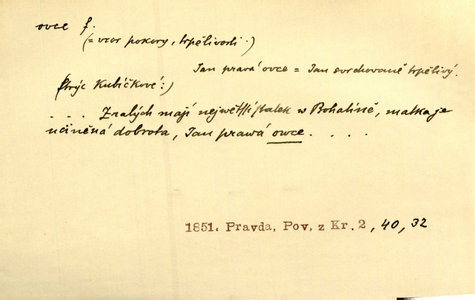 ovce f.
(= vzor pokory, trpělivosti.)
Jan pravá ovce = Jan svrchovaně trpělivý.
(Strýc Kubíčkové:)
. . . . Zralých mají největší statek w Bohalíně, matka je
učiněná dobrota, Jan prawá owce. . . .
1851. Pravda, Pov. z Kr. 2, 40, 32